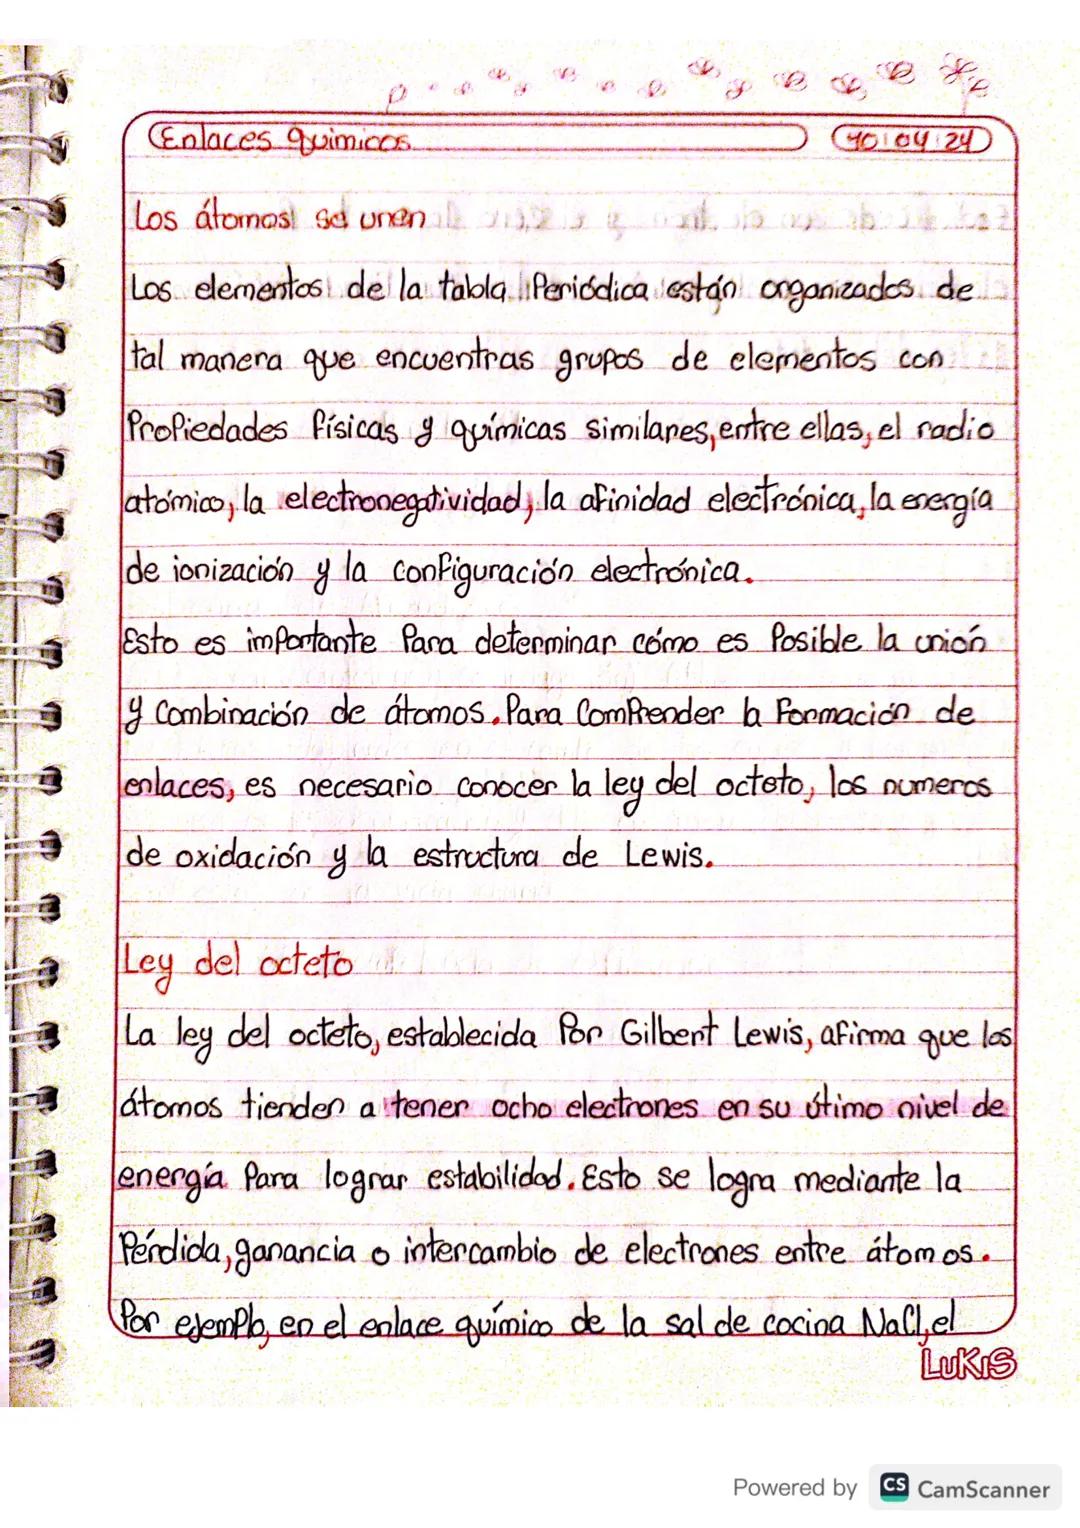 Enlaces quimicos
10 04 24
Los átomos se unen
Los elementos de la tabla Periódica están organizados de
tal manera que encuentras grupos de elementos con
Propiedades físicas y químicas similares, entre ellas, el radio
atómico, la electronegatividad, la afinidad electrónica, la energía
de ionización y la configuración electrónica.
Esto es importante Para determinar cómo es Posible la unión
y combinación de átomos. Para Comprender la Formación de
enlaces, es necesario conocer la ley del octeto, los numeros
de oxidación y la estructura de Lewis.
Ley del octeto
La ley del octeto, establecida Por Gilbert Lewis, afirma que los
átomos tienden a tener ocho electrones en su útimo nivel de
energía Para lograr estabilidad. Esto se logra mediante la
Pérdida, ganancia o intercambio de electrones entre átomos.
Por ejemplo, en el enlace químico de la sal de cocina NaCl, el
LuKiS
Powered by CS CamScanner